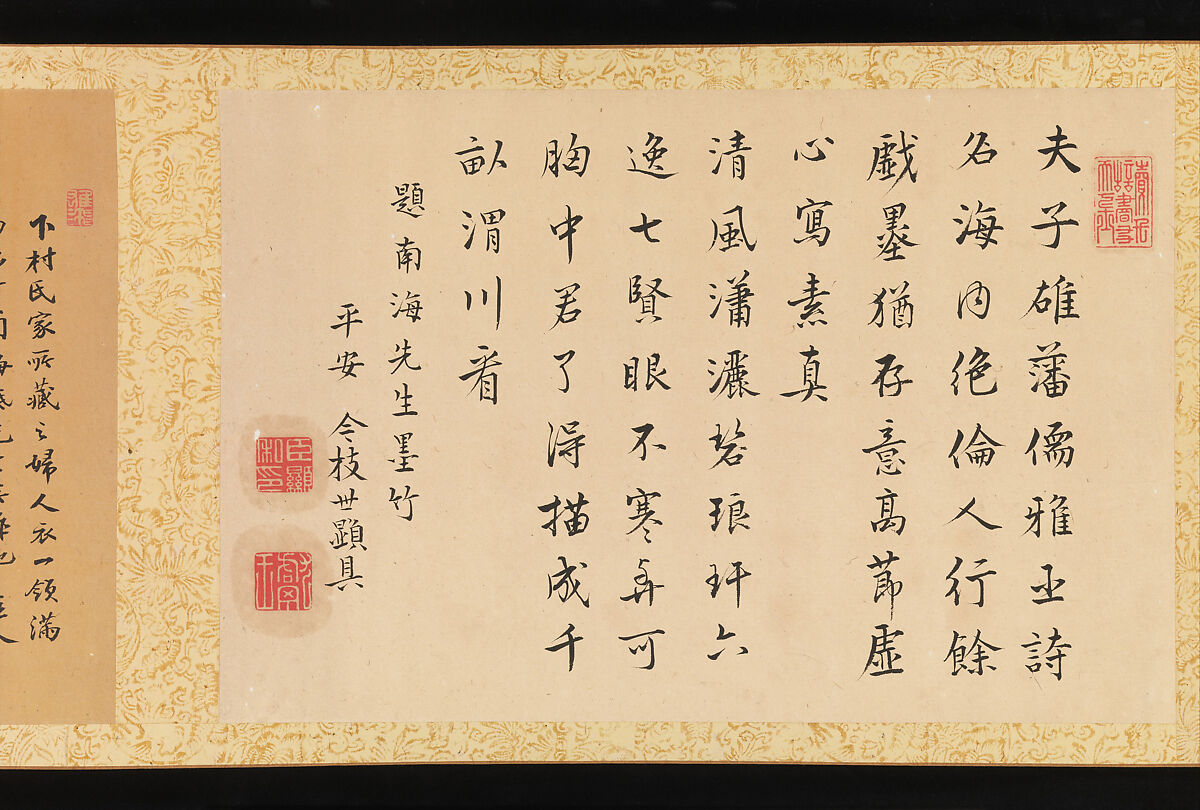 夫子雄藩儒雅工詩
名海内絶倫人行餘
戯墨猶存意高節虚
心寫素真
清風瀟灑碧琅玕六
逸七賢眼不寒弄可
胸中君了得描成千
畝渭川看
題南海先生墨竹
平安 今枝世顕具
臣顯
下村氏家所藏之婦人衣一領滿